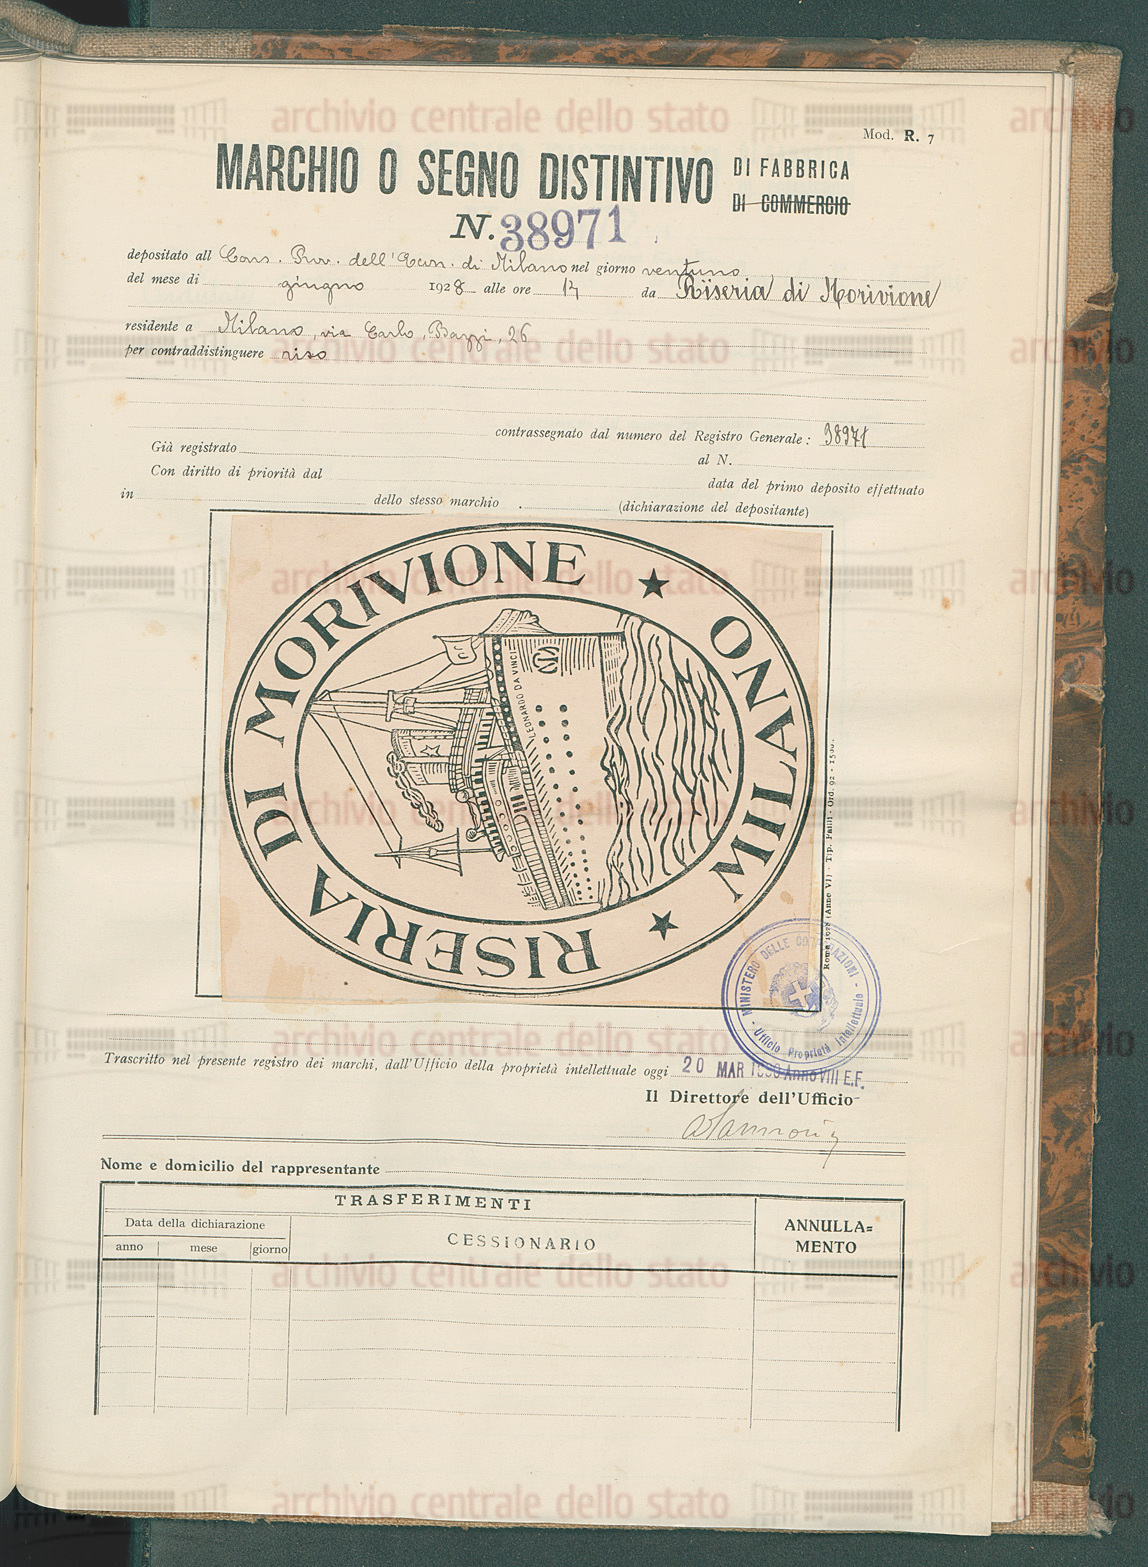 Mod. R. 7
MARCHIO O SEGNO DISTINTIVO DI FABBRICA
DI COMMERCIO
N. 38971
depositato all Cons. Prov. dell'Econ. di Milano nel giorno ventuno
del mese di giugno 1928 alle ore 17 da Riseria di Morivione
residente a Milano, via Carlo, Bazzi, 26
per contraddistinguere riso
contrassegnato dal numero del Registro Generale: 38971
Già registrato al N.
Con diritto di priorità dal data del primo deposito effettuato
in dello stesso marchio (dichiarazione del depositante)
RISERIA DI MORIVIONE ★ MILANO ★
LEONARDO DA VINCI
Roma 1928 (Anne VI) - Tip. Failli - Ord. 92 -
MINISTERO DELLE CORPORAZIONI
- Ufficio Proprietà Intellettuale -
Trascritto nel presente registro dei marchi, dall'Ufficio della proprietà intellettuale oggi 20 MAR 1930 Anno VIII E.F.
Il Direttore dell'Ufficio
Nome e domicilio del rappresentante
TRASFERIMENTI
Data della dichiarazione
anno mese giorno
CESSIONARIO
ANNULLA=
MENTO
archivio centrale dello stato